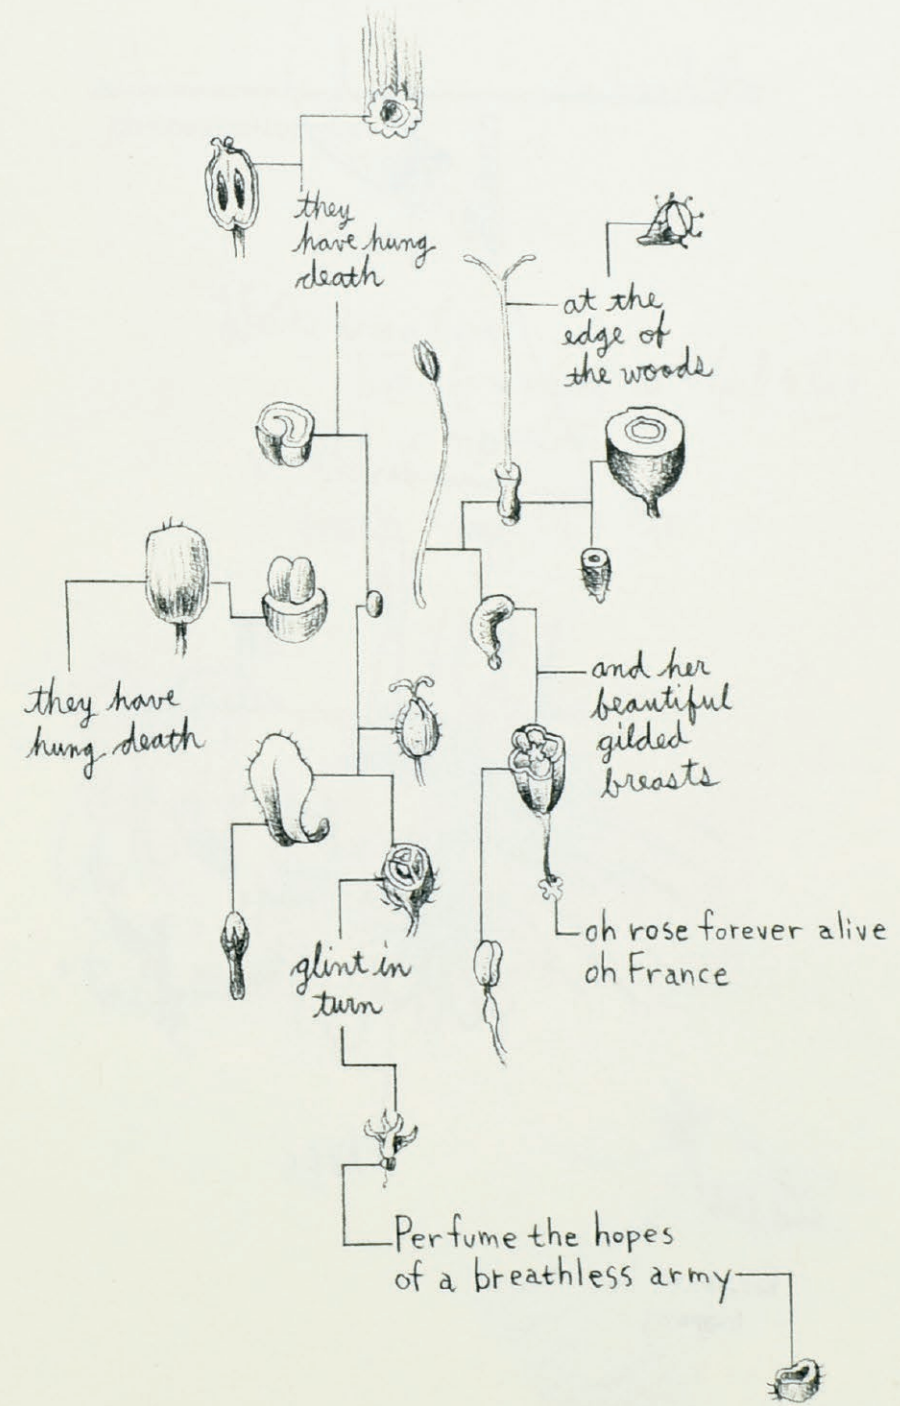 they
have hung
death
at the
edge of
the woods
they have
hung death
and her
beautiful
gilded
breasts
oh rose forever alive
oh France
glint in
turn
Perfume the hopes
of a breathless army